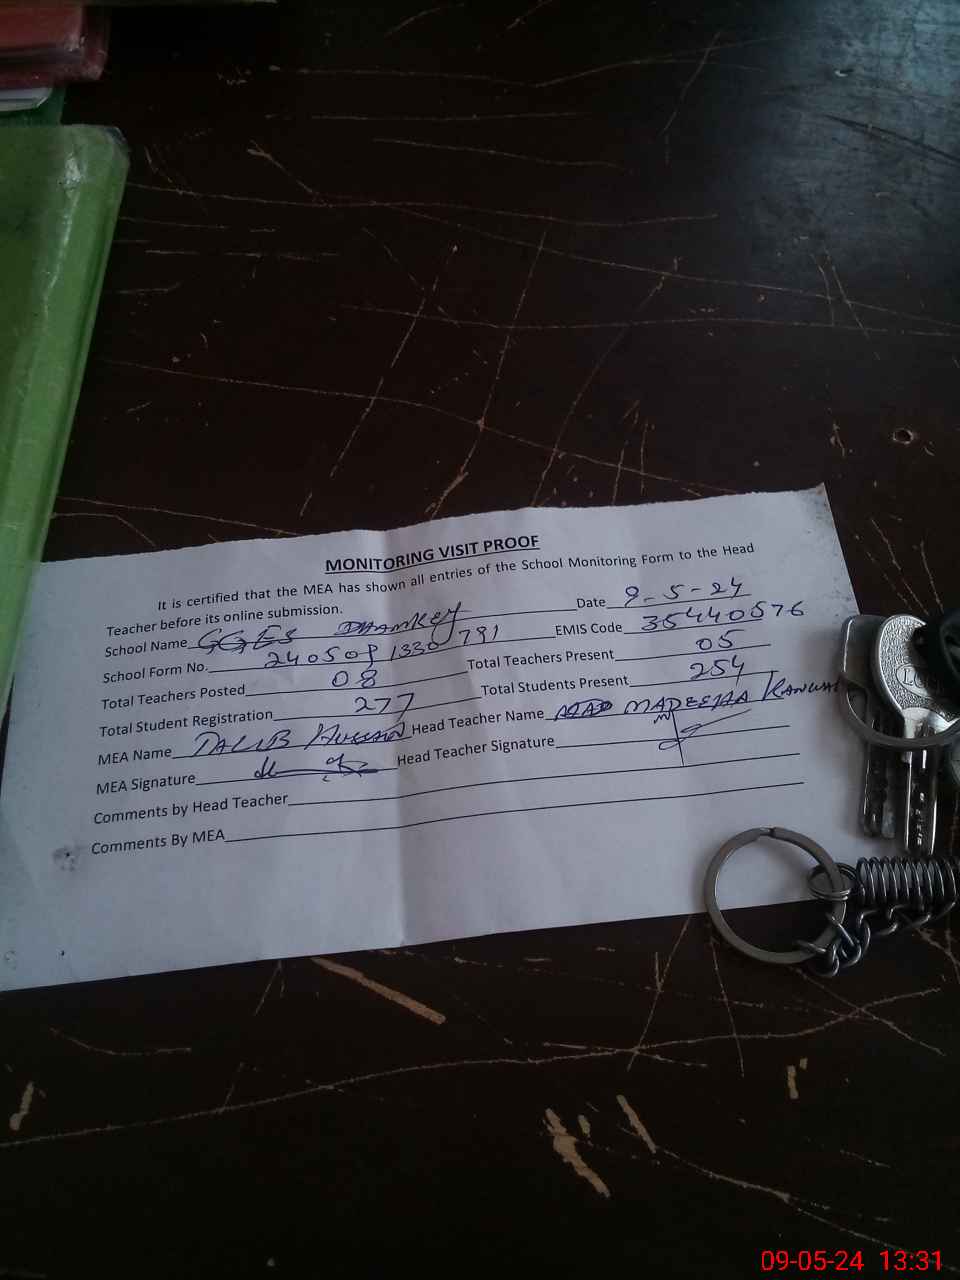 MONITORING VISIT PROOF
It is certified that the MEA has shown all entries of the School Monitoring Form to the Head
Teacher before its online submission.
Date 9-5-24
School Name GGES DHAMKEY
EMIS Code 35440576
School Form No. 240509 1330 791
Total Teachers Posted 08
Total Teachers Present 05
Total Student Registration 277
Total Students Present 254
MEA Name TALIB HUSSAIN
Head Teacher Name MADEEHA KANWAL
MEA Signature
Head Teacher Signature
Comments by Head Teacher
Comments By MEA
09-05-24 13:31